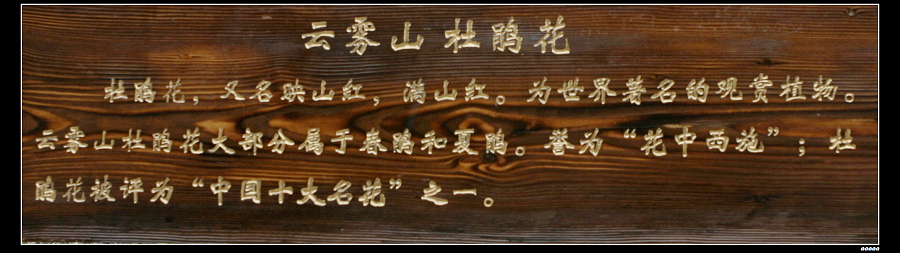 云雾山杜鹃花
杜鹃花，又名映山红，满山红。为世界著名的观赏植物。
云雾山杜鹃花大部分属于春鹃和夏鹃。誉为“花中西施”；杜
鹃花被评为“中国十大名花”之一。